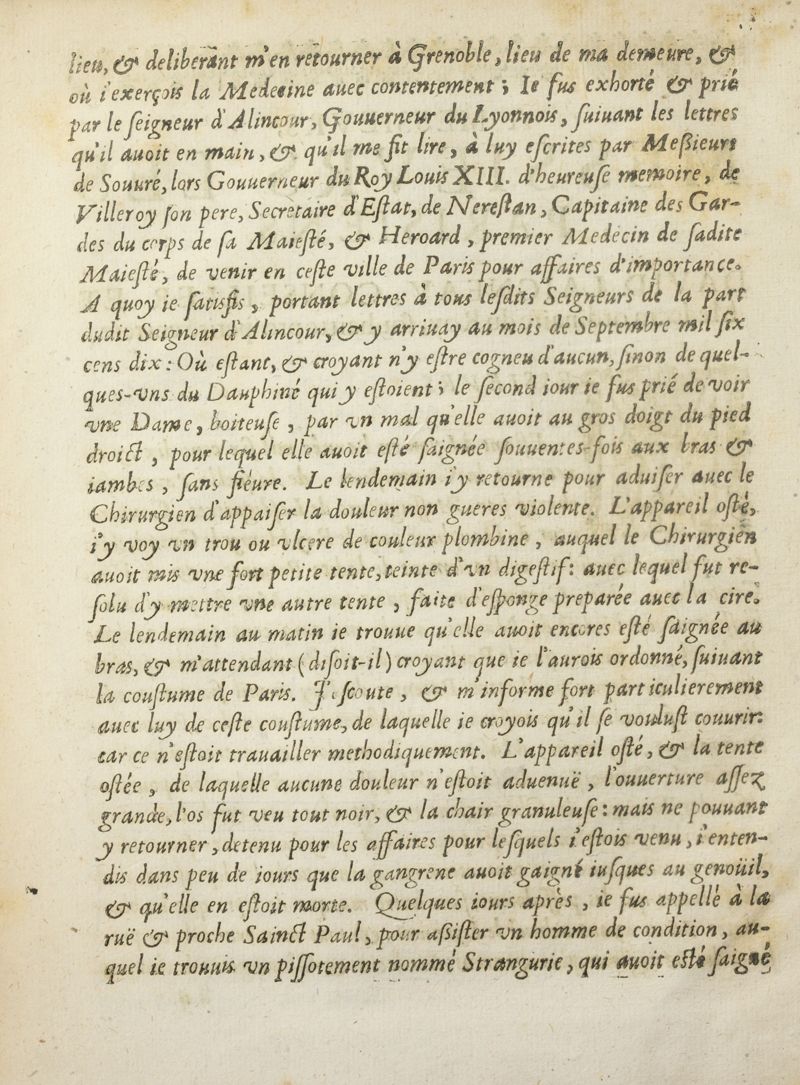 lieu, & deliberant m'en retourner à Grenoble, lieu de ma demeure, &
où i'exerçois la Medecine auec contentement ; Ie fus exhorté & prié
par le ſeigneur d'Alincour, Gouuerneur du Lyonnois, ſuiuant les lettres
qu'il auoit en main, & qu'il me fit lire, à luy eſcrites par Meßieurs
de Souuré, lors Gouuerneur du Roy Louis XIII. d'heureuſe memoire, de
Villeroy ſon pere, Secretaire d'Eſtat, de Nereſtan, Capitaine des Gar-
des du corps de ſa Maieſté, & Heroard, premier Medecin de ſadite
Maieſté, de venir en ceſte ville de Paris pour affaires d'importance.
A quoy ie ſatisfis, portant lettres à tous leſdits Seigneurs de la part
dudit Seigneur d'Alincour, & y arriuay au mois de Septembre mil ſix
cens dix : Où eſtant, & croyant n'y eſtre cogneu d'aucun, ſinon de quel-
ques-vns du Dauphiné qui y eſtoient ; le ſecond iour ie fus prié de voir
vne Dame, boiteuſe, par vn mal qu'elle auoit au gros doigt du pied
droict, pour lequel elle auoit eſté ſaignée ſouuentes-fois aux bras &
iambes, ſans fiéure. Le lendemain i'y retourne pour aduiſer auec le
Chirurgien d'appaiſer la douleur non gueres violente. L'appareil oſté,
i'y voy vn trou ou vlcere de couleur plombine, auquel le Chirurgien
auoit mis vne fort petite tente, teinte d'vn digeſtif : auec lequel fut re-
ſolu d'y mettre vne autre tente, faite d'eſponge preparée auec la cire.
Le lendemain au matin ie trouue qu'elle auoit encores eſté ſaignée au
bras, & m'attendant (diſoit-il) croyant que ie l'aurois ordonné, ſuiuant
la couſtume de Paris. I'eſcoute, & m'informe fort particulierement
auec luy de ceſte couſtume, de laquelle ie croyois qu'il ſe vouluſt couurir:
car ce n'eſtoit trauailler methodiquement. L'appareil oſté, & la tente
oſtée, de laquelle aucune douleur n'eſtoit aduenuë, l'ouuerture aſſez
grande, l'os fut veu tout noir, & la chair granuleuſe : mais ne pouuant
y retourner, detenu pour les affaires pour leſquels i'eſtois venu, i'enten-
dis dans peu de iours que la gangrene auoit gaigné iuſques au genoüil,
& qu'elle en eſtoit morte. Quelques iours après, ie fus appellé à la
ruë & proche Sainct Paul, pour aßiſter vn homme de condition, au-
quel ie trouuis vn piſſotement nommé Strangurie, qui auoit eſté ſaigné